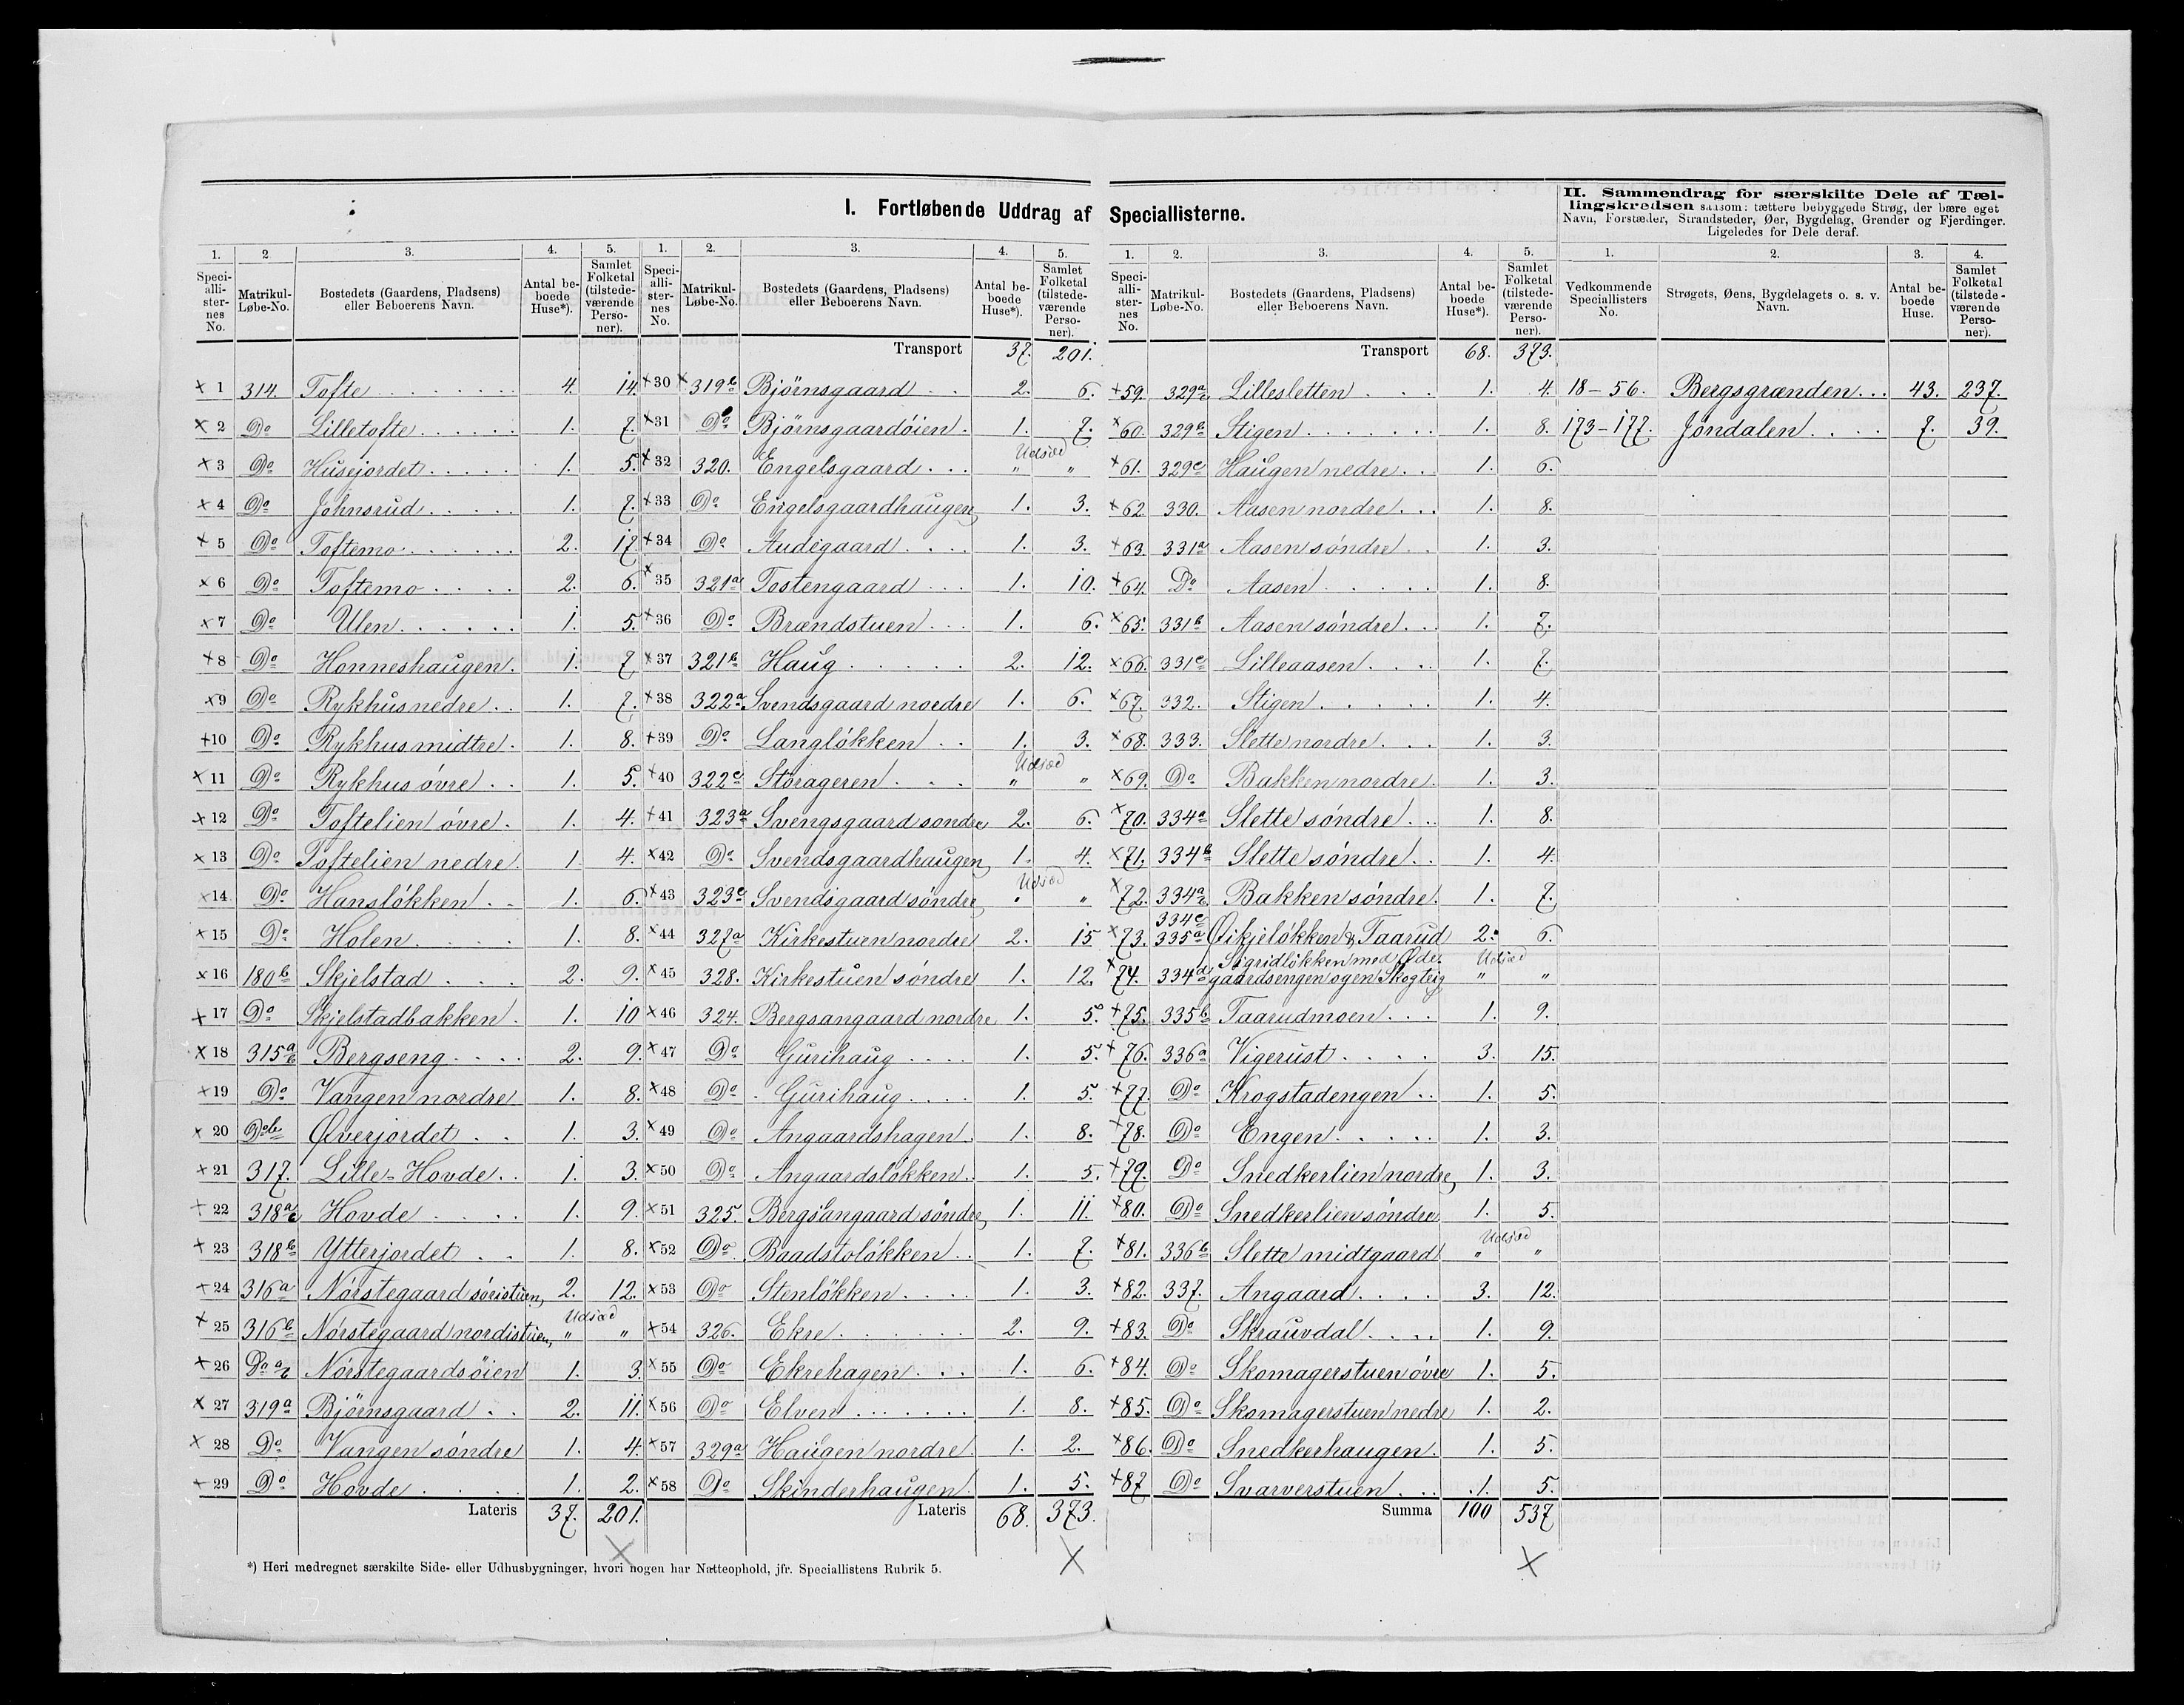 I. Fortløbende Uddrag af Speciallisterne.
II. Sammendrag for særskilte Dele af Tællingskredsen saasom: tættere bebyggede Strøg, der bære eget Navn, Forstæder, Strandsteder, Øer, Bygdelag, Grender og Fjerdinger. Ligeledes for Dele deraf.
1. 2 3. 4. 5.
Speciallisternes No. Matrikul-Løbe-No. Bostedets (Gaardens, Pladsens) eller Beboerens Navn. Antal beboede Huse*). Samlet Folketal (tilstedeværende Personer).
× 1 314. Tofte 4. 14.
× 2 Do Lilletofte 1. 7.
× 3 Do Husejordet 1. 5.
× 4 Do Johnsrud 1. 7.
× 5 Do Toftemo 2. 17
× 6 Do Toftemo 2. 6.
× 7 Do Ulen 1. 5.
× 8 Do Honneshaugen. 1. 7
× 9 Do Rykhus nedre 1. 7.
× 10 Do Rykhus midtre. 1. 8.
× 11 Do Rykhus øvre 1. 5.
× 12 Do Toftelien øvre. 1. 4.
× 13 Do Toftelien nedre. 1. 4.
× 14 Do Hansløkken 1. 6.
× 15 Do Holen 1. 8.
× 16 180b Skjelstad 2. 9.
× 17 Do Skjelstadbakken. 1. 10
× 18 315a Bergseng 2. 9.
× 19 Do Vangen nordre 1. 8.
× 20 Do b Øverjordet 1. 3.
× 21 317. Lille-Hovde 1. 3.
× 22 318a Hovde 1. 9.
× 23 318b Ytterjordet 1. 8.
× 24 316a Nørstegaard søristuen, 2. 12.
× 25 316b Nørstegaard nordistuen, Udsæd " "
× 26 Do a Nørstegaardsøien 1. 3.
× 27 319a Bjørnsgaard 2. 11.
× 28 Do Vangen søndre 1. 4.
× 29 Do Hovde 1. 2.
Lateris 37. 201.
1. 2. 3. 4. 5.
Speciallisternes No. Matrikul-Løbe-No. Bostedets (Gaardens, Pladsens) eller Beboerens Navn. Antal beboede Huse*). Samlet Folketal (tilstedeværende Personer).
Transport 37. 201.
× 30 × 319b Bjørnsgaard 2. 6.
× 31 Do Bjørnsgaardøien. 1. 7.
× 32 320. Engelsgaard Udsæd " "
× 33 Do Engelsgaardhaugen 1. 3.
× 34 Do Audigaard 1. 3.
× 35 321a Tostengaard 1. 10.
× 36 Do Brændstuen 1. 6.
× 37 321b Haug 2. 12.
× 38 322a Svendsgaard nordre 1. 6.
× 39 Do Langløkken 1. 3.
× 40 322c Storageren Udsæd " "
× 41 323a Svengsgaard søndre 2. 6.
× 42 Do Svendsgaardhaugen 1. 4.
× 43 323c Svendsgaard søndre Udsæd " "
× 44 327a Kirkestuen nordre 2. 15
× 45 328. Kirkestuen søndre 1. 12.
× 46 324. Bergsangaard nordre 1. 5.
× 47 Do Gurihaug 1. 5.
× 48 Do Gurihaug 1. 5.
× 49 Do Angaardshagen. 1. 8.
× 50 Do Angaardsløkken. 1. 5.
× 51 325. Bergsangaard søndre, 1. 11.
× 52 Do Baadstoløkken 1. 7.
× 53 Do Stenløkken 1. 3.
× 54 326. Ekre 2. 9.
× 55 Do Ekrehagen 1. 6.
× 56 Do Elven 1. 8.
× 57 329a Haugen nordre. 1. 2.
× 58 Do Skinderhaugen. 1. 5.
Lateris 68. 373.
1. 2. 3. 4. 5.
Speciallisternes No. Matrikul-Løbe-No. Bostedets (Gaardens, Pladsens) eller Beboerens Navn. Antal beboede Huse*). Samlet Folketal (tilstedeværende Personer).
Transport 68. 373.
× 59. 329a Lillesletten 1. 4.
× 60. 329b Stigen 1. 8.
× 61. 329c Haugen nedre 1. 6.
× 62 330. Aasen nordre 1. 8.
× 63. 331a Aasen søndre 1. 3.
× 64. Do Aasen 1. 8.
× 65. 331b Aasen søndre 1. 7.
× 66. 331c Lilleaasen 1. 7.
× 67. 332. Stigen 1. 4.
× 68. 333. Slette nordre 1. 3.
× 69. Do Bakken nordre. 1. 3.
× 70. 334a Slette søndre 1. 8.
× 71. 334b Slette søndre 1. 4.
× 72. 334a Bakken søndre. 1. 7.
× 73. 334c 335a Øikjeløkken & Taarud 2. 6.
× 74. 334d Sigridløkken med Ødegaardsengen og en Skogteig Udsæd " "
× 75. 335b Taarudmoen 1. 9.
× 76. 336a Vigerust 3. 15.
× 77. Do Krogstadengen 1. 5.
× 78. Do Engen 1. 3.
× 79. Do Snedkerlien nordre, 1. 3.
× 80. Do Snedkerlien søndre 1. 5.
× 81. 336b Slette midtgaard Udsæd " "
× 82. 337. Angaard 3. 12.
× 83. Do Skrauvdal 1. 9.
× 84. Do Skomagerstuen øvre 1. 5.
× 85. Do Skomagerstuen nedre 1. 2.
× 86. Do Snedkerhaugen. 1. 5.
× 87 Do Svarverstuen 1. 5.
Summa 100 537
1. 2. 3. 4.
Vedkommende Speciallisters No. Strøgets, Øens, Bygdelagets o. s. v. Navn. Antal beboede Huse. Samlet Folketal (tilstedeværende Personer).
18 – 56. Bergsgrænden 43. 237.
173 – 177. Jøndalen 7. 39.
*) Heri medregnet særskilte Side- eller Udhusbygninger, hvori nogen har Natteophold, jfr. Speciallistens Rubrik 5.